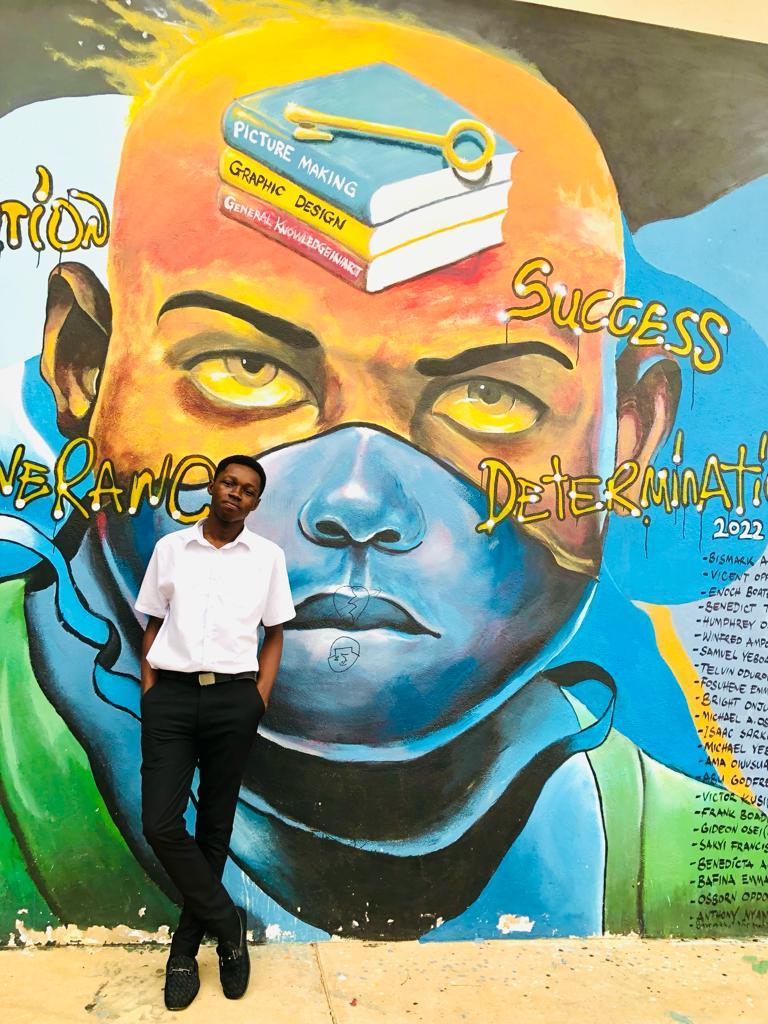 PICTURE MAKING
GRAPHIC DESIGN
GENERAL KNOWLEDGE IN ART
TION
SUCCESS
VERANC
DETERMINATI
2022
-BISMARK A
-VICENT OPP
-ENOCH BOAT
-BENEDICT T
-HUMPHREY O
-WINFRED AMPO
-SAMUEL YEBOA
-TELVIN ODURO
-FOSUHENE EMM
-BRIGHT ONJU
-MICHAEL A.OS
-ISAAC SARK
-MICHAEL YEB
-AMA OWUSUA
-ABU GODFRE
-VICTOR KUSI
-FRANK BOAD
-GIDEON OSEI(
-SAKYI FRANCIS
-BENEDICTA A
-BAFINA EMMA
-OSBORN OPPO
-ANTHONY NYAN